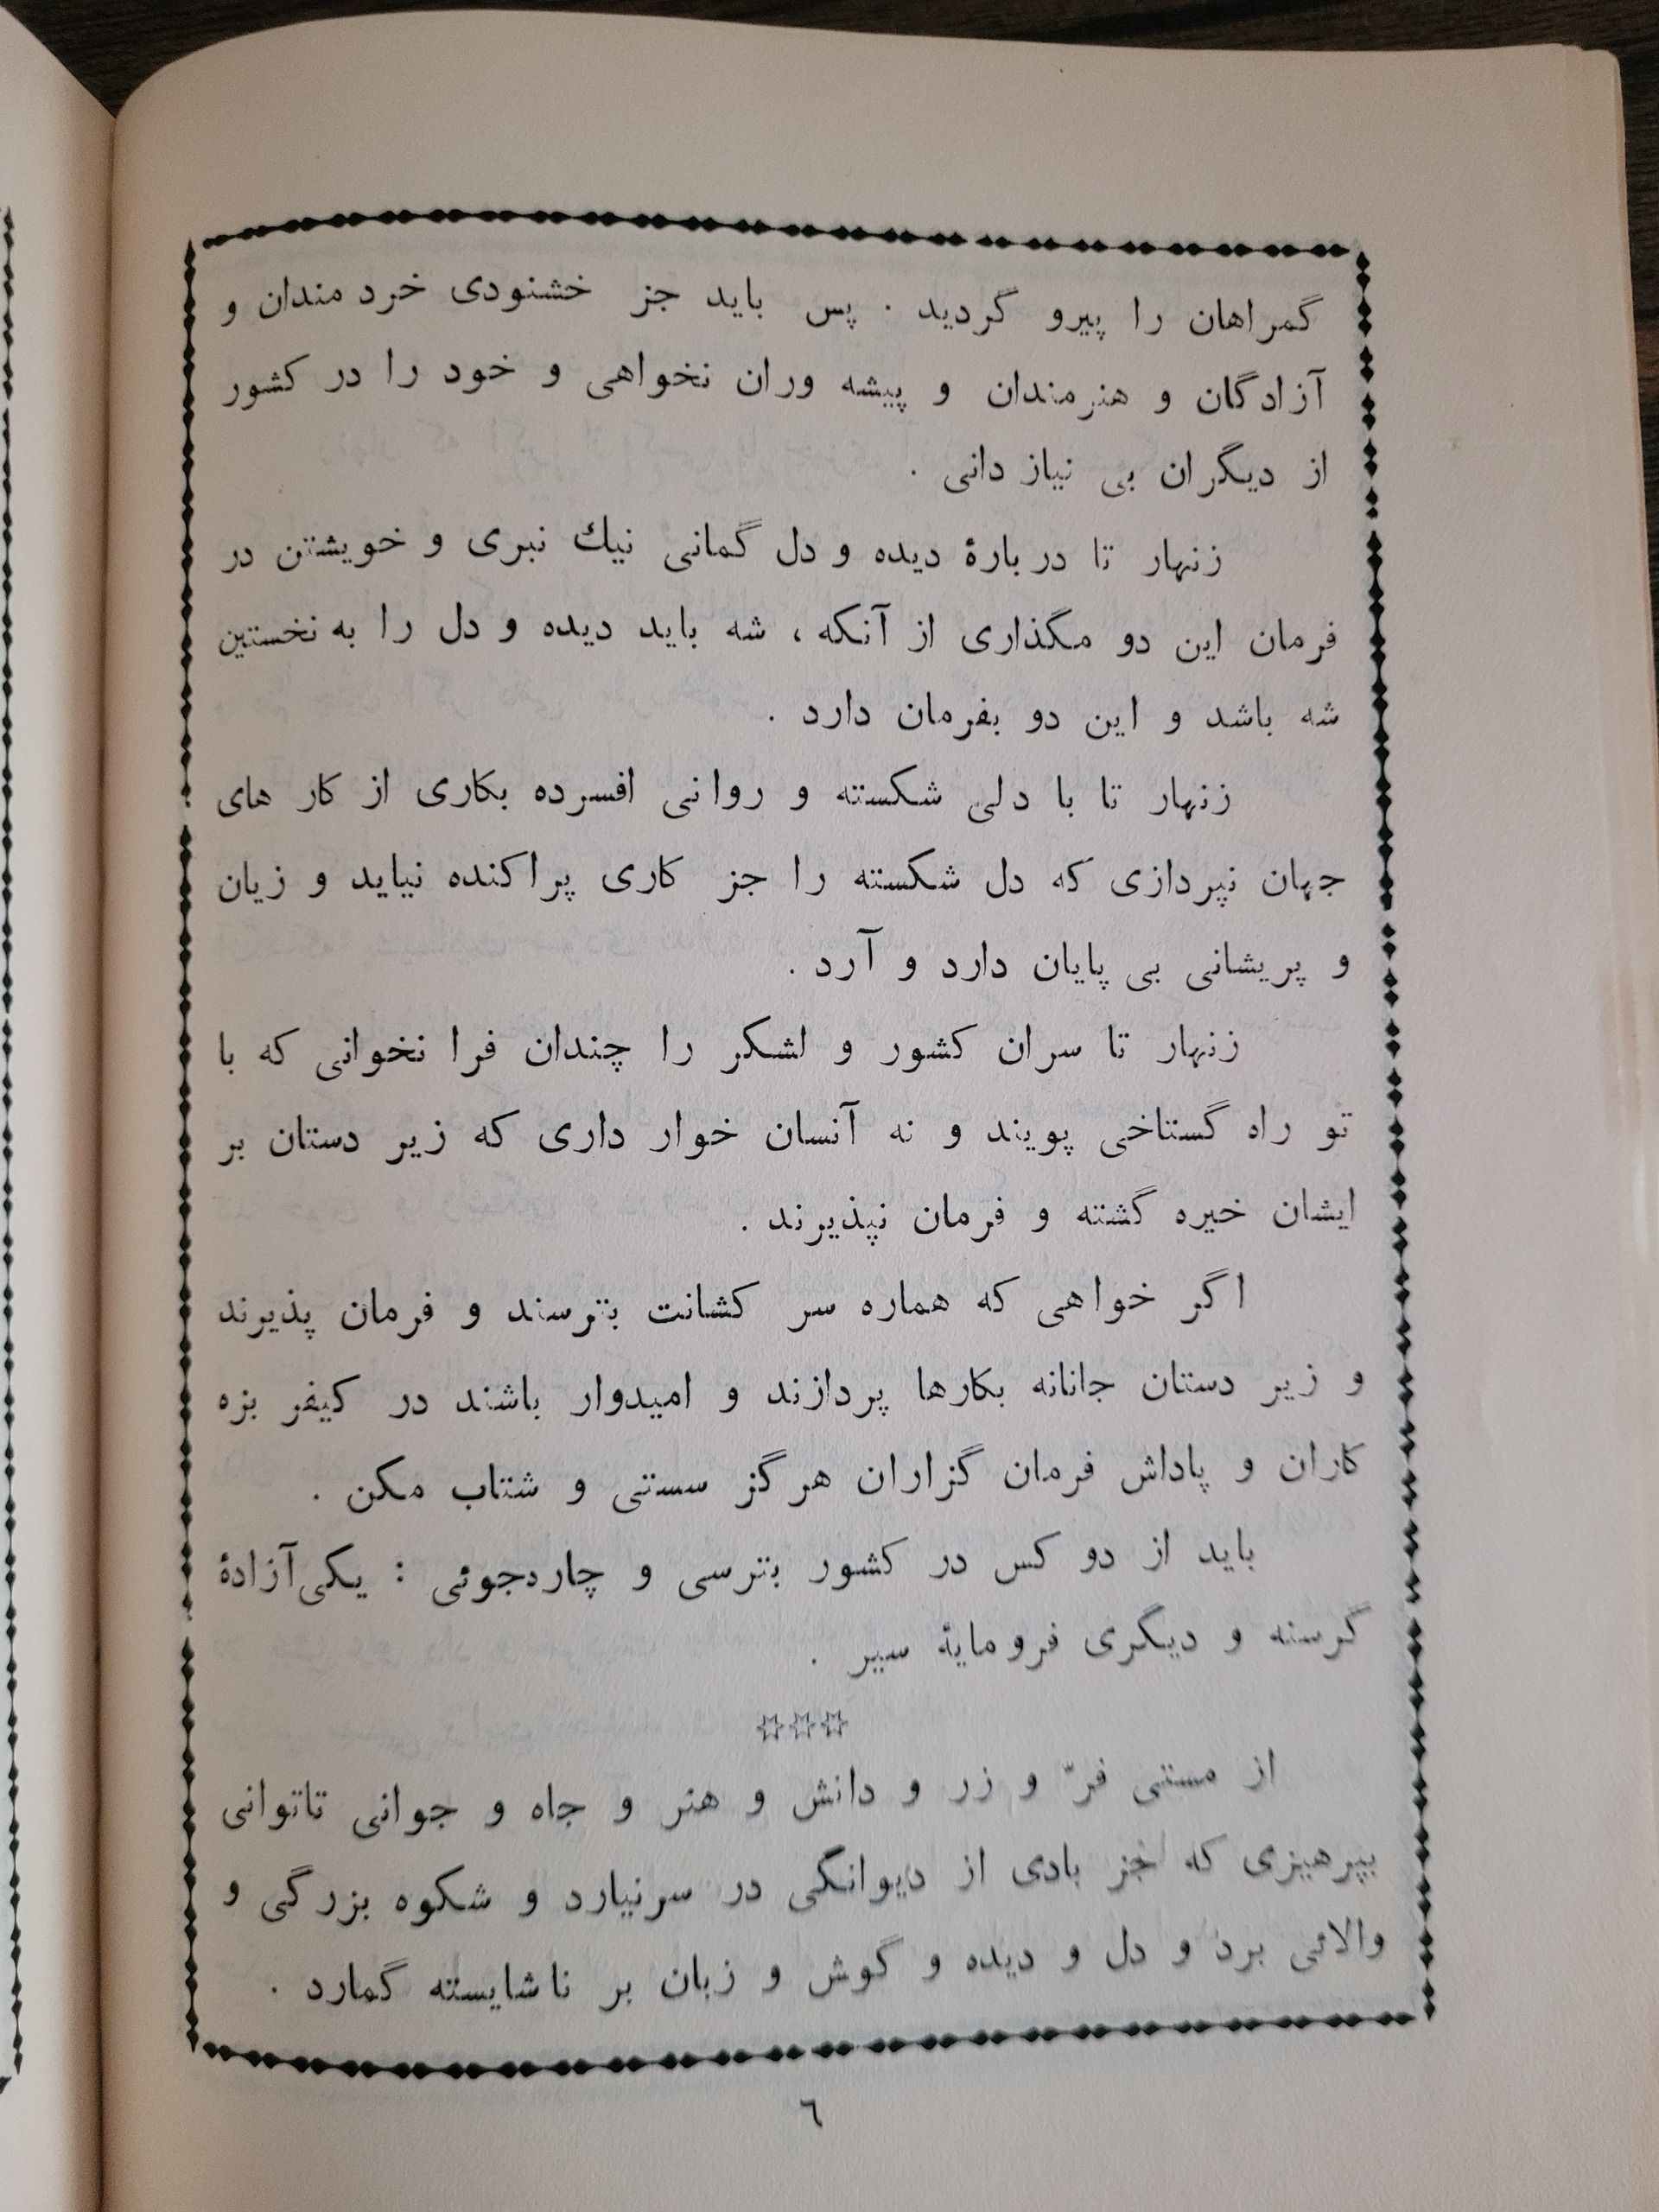 گمراهان را پیرو گردید . پس باید جز خشنودی خردمندان و
آزادگان و هنرمندان و پیشه وران نخواهی و خود را در کشور
از دیگران بی نیاز دانی .
زنهار تا در بارهٔ دیده و دل گمانی نیك نبری و خویشتن در
فرمان این دو مگذاری از آنکه ، شه باید دیده و دل را به نخستین
شه باشد و این دو بفرمان دارد .
زنهار تا با دلی شکسته و روانی افسرده بکاری از کار های
جهان نپردازی که دل شکسته را جز کاری پراکنده نیاید و زیان
و پریشانی بی پایان دارد و آرد .
زنهار تا سران کشور و لشکر را چندان فرا نخوانی که با
تو راه گستاخی پویند و نه آنسان خوار داری که زیر دستان بر
ایشان خیره گشته و فرمان نپذیرند .
اگر خواهی که هماره سر کشانت بترسند و فرمان پذیرند
و زیر دستان جانانه بکارها پردازند و امیدوار باشند در کیفر بزه
کاران و پاداش فرمان گزاران هرگز سستی و شتاب مکن .
باید از دو کس در کشور بترسی و چاره‌جوئی : یکی آزادهٔ
گرسنه و دیگری فرومایهٔ سیر .
☆☆☆
از مستی فرّ و زر و دانش و هنر و جاه و جوانی تاتوانی
بپرهیزی که جز بادی از دیوانگی در سرنیارد و شکوه بزرگی و
والائی برد و دل و دیده و گوش و زبان بر ناشایسته گمارد .
٦